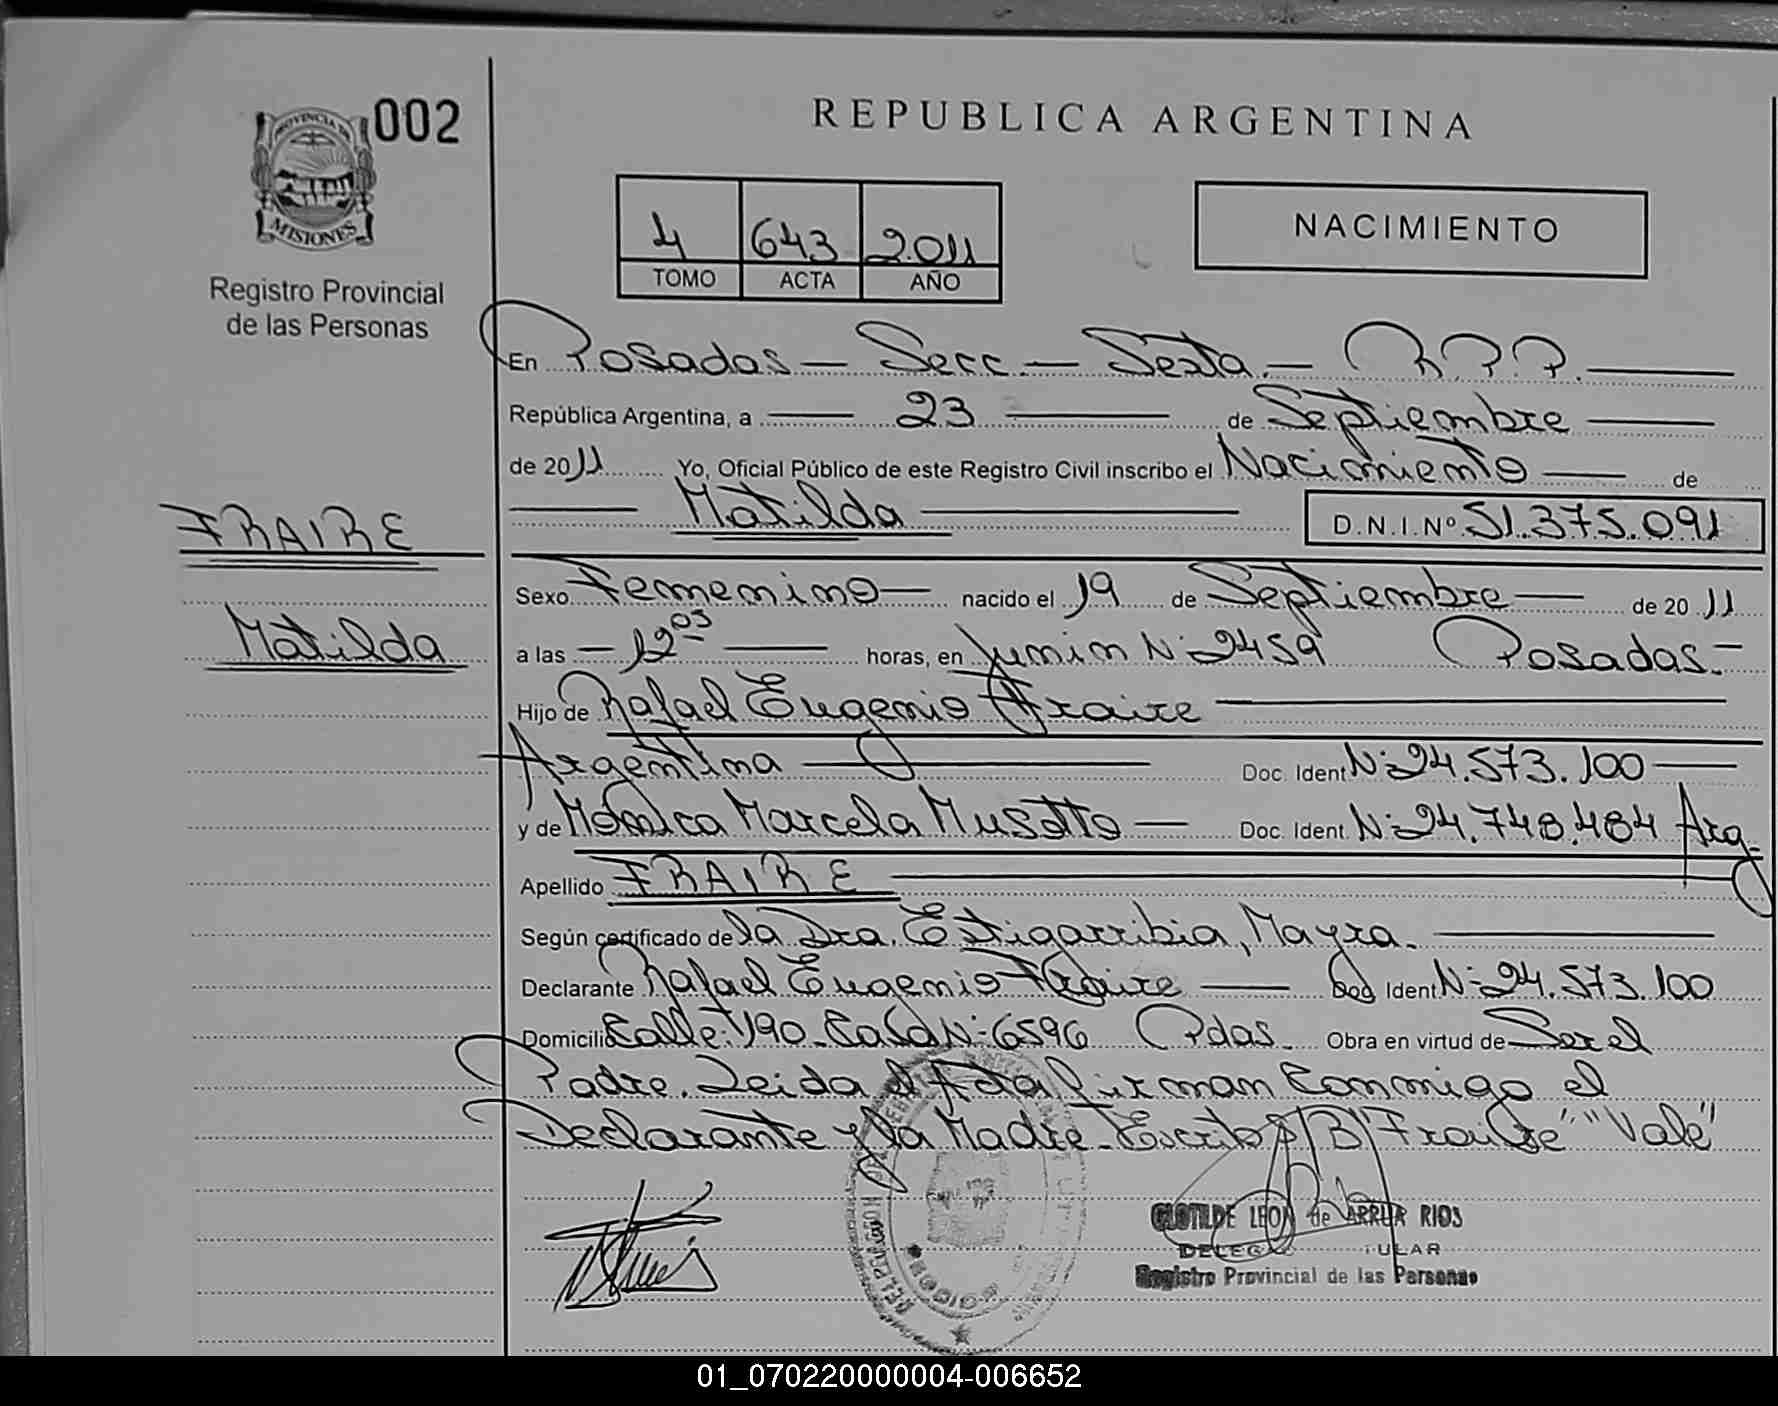 002
PROVINCIA DE
MISIONES
Registro Provincial
de las Personas
REPUBLICA ARGENTINA
4 643 2.011
TOMO ACTA AÑO
NACIMIENTO
En Posadas - Secc. - Sexta. - R.P.P.
República Argentina, a 23 de Septiembre
de 2011 Yo, Oficial Público de este Registro Civil inscribo el Nacimiento de
Matilda D.N.I.Nº 51.375.091
FRAIRE
Sexo Femenino nacido el 19 de Septiembre de 2011
Matilda
a las 12 05 horas, en Junin N: 2459 Posadas.
Hijo de Rafael Eugenio Fraire
Argentina Doc. Ident N: 24.573.100
y de Mónica Marcela Musotto Doc. Ident. N: 24.748.484 Arg.
Apellido FRAIRE
Según certificado de la Dra. Estigarribia, Mayra.
Declarante Rafael Eugenio Fraire Doc Ident N: 24.573.100
Domicilio Calle: 190. Casa N: 6596 Pdas. Obra en virtud de Ser el
Padre. Leida el Acta firman Conmigo el
Declarante y la Madre. Escrito S/B "Fraire" "Vale"
CLOTILDE LEON de ARRUA RIOS
Registro Provincial de las Personas
01_070220000004-006652